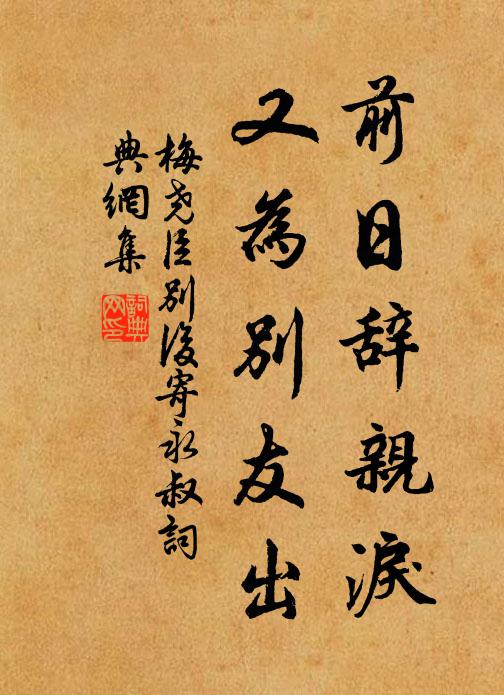 前日辞親淚
又為別友出
梅尧臣別後寄永叔詞
典網集
詞典
网印